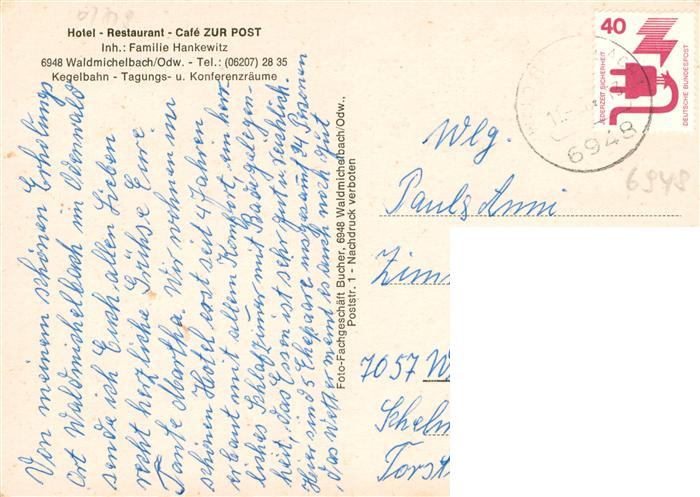 Hotel - Restaurant - Café ZUR POST
Inh.: Familie Hankewitz
6948 Waldmichelbach/Odw. - Tel.: (06207) 28 35
Kegelbahn - Tagungs- u. Konferenzräume
Von meinem schönen Erholungs
ort Waldmichelbach im Odenwald
sende ich Euch allen Lieben
recht herzliche Grühse Eure
Tante Martha. Wir wohnen im
schönen Hotel erst seit 4 Jahren
erbaut mit allem Komfort, ein herr
liches Schlafzimmer mit Badegelegen-
heit, das Essen ist sehr gut u. reichlich.
Hier sind 5 Ehepaare insgesamt 24 Personen
das Wetter meint es auch noch gut
Foto-Fachgeschäft Bucher, 6948 Waldmichelbach/Odw.,
Poststr. 1 - Nachdruck verboten
40
JEDERZEIT SICHERHEIT
DEUTSCHE BUNDESPOST
6948
6948
Wlg.
Pauls Anni
Zim
7057 W
Schel
Forst